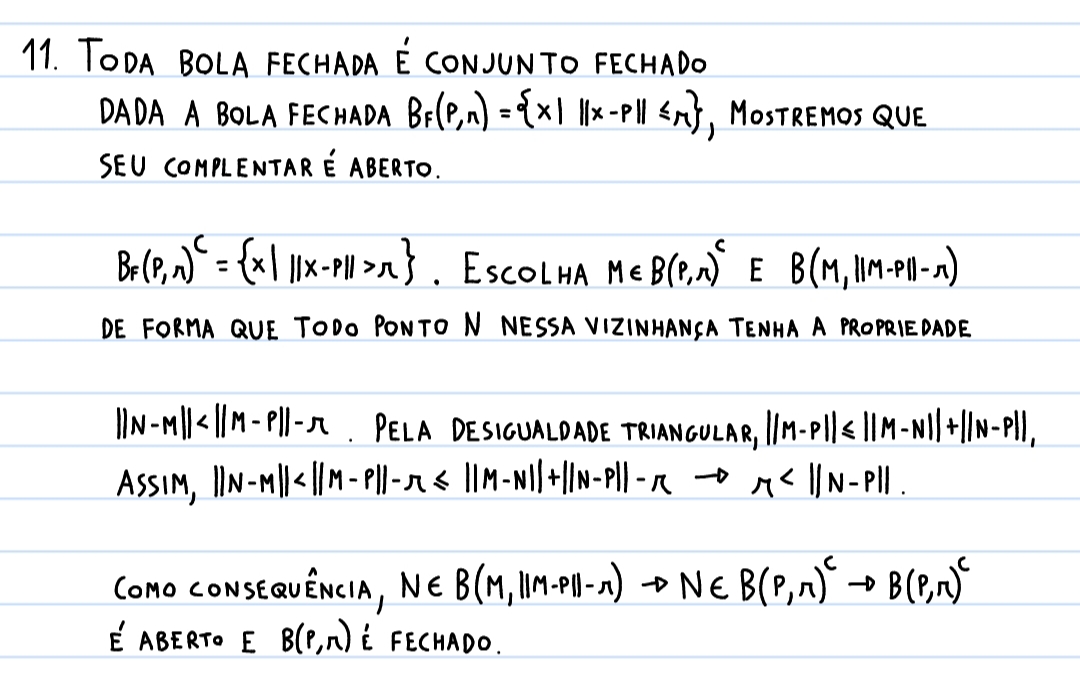 11. TODA BOLA FECHADA É CONJUNTO FECHADO
DADA A BOLA FECHADA BF(P,r) = {x| ||x-P|| ≤ r}, MOSTREMOS QUE
SEU COMPLENTAR É ABERTO.
BF(P,r)^C = {x| ||x-P|| > r}. ESCOLHA M ∈ B(P,r)^C E B(M,||M-P||-r)
DE FORMA QUE TODO PONTO N NESSA VIZINHANÇA TENHA A PROPRIEDADE
||N-M|| < ||M-P||-r. PELA DESIGUALDADE TRIANGULAR, ||M-P|| ≤ ||M-N||+||N-P||,
ASSIM, ||N-M|| < ||M-P||-r ≤ ||M-N||+||N-P||-r → r < ||N-P||.
COMO CONSEQUÊNCIA, N ∈ B(M,||M-P||-r) → N ∈ B(P,r)^C → B(P,r)^C
É ABERTO E B(P,r) É FECHADO.